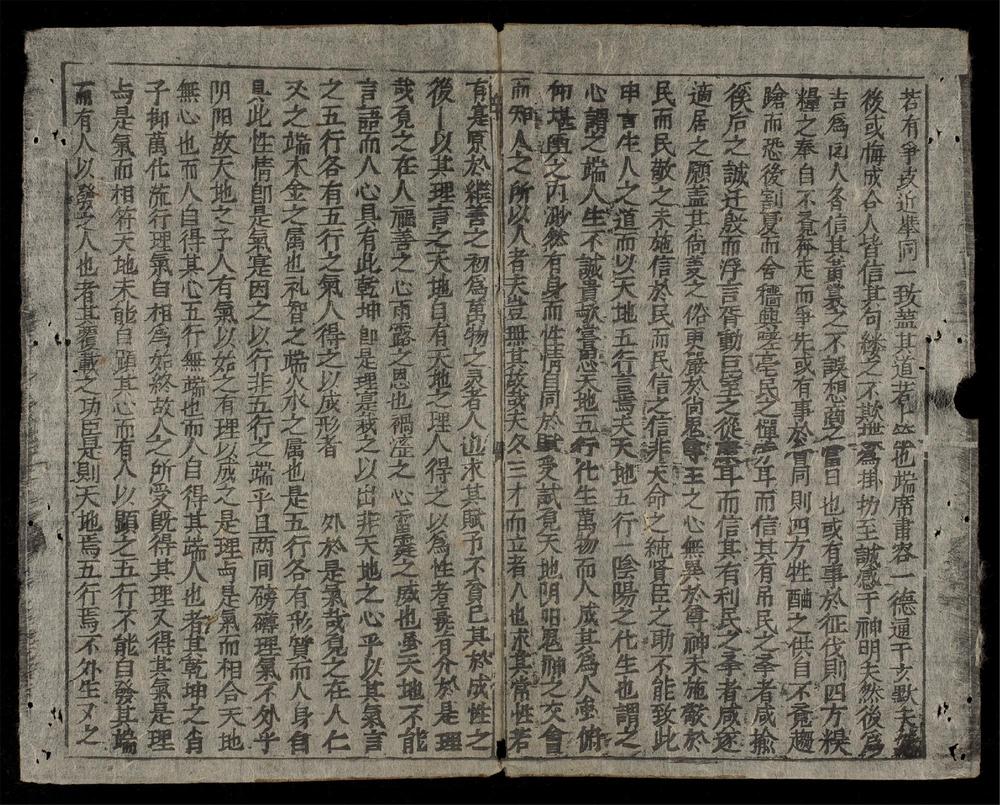 若有爭攴近舉同一致盖其道若上笇也端席書容一德通于玄默夫
後或悔成合人皆信其句繇之不欺揲爲掛扐至誠感于神明夫然後爲
吉爲同人各信其蓍䇲之不誤想酋之當日也或有事於征伐則四方糗
糧之奉自不覺奔走而爭先或有事於會同則四方牲酳之供自不覺趨
蹌而恐後割夏而舍穡興嗟亳民之憚勞耳而信其有吊民之孝者咸掄
徯后之誠迁殷而浮言胥動巨室之從康耳而信其有利民之孝者咸遂
適居之願盖其尚菱之俗更嚴於尚鬼尊王之心無異於尊神未施敬於
民而民敬之未施信於民而民信之信非天命之純賢臣之助不能致此
申言生人之道而以天地五行言焉夫天地五行一陰陽之化生也謂之
心謂之端人生不誠貴哉嘗思天地五行化生萬物而人成其爲人寥俯
仰堪輿之內渺然有身而性情自同於賦受試覓天地阴阳鬼神之交會
而知人之所以人者天豈無其故哉夫冬三才而立者人也求其常性若
有㝎原於継善之初爲萬物之灵者人也求其賦予不貟已其於成性之
後一以其理言之天地自有天地之理人得之以爲性者豪有外於是理
哉覓之在人福善之心雨露之恩也禍滛之心雷霆之威也虽天地不能
言語而人心具有此乾坤即是理㝎萩之以出非天地之心乎以其氣言
之五行各有五行之氣人得之以成形者 外於是氣哉覓之在人仁
义之端木金之属也礼智之端火水之属也是五行各有形質而人身自
具此性情卽是氣㝎因之以行非五行之端乎且两间磅礡理氣不外乎
阴阳故天地之子人有氣以始之有理以成之是理与是氣而相合天地
無心也而人自得其心五行無端也而人自得其端人也者其乾坤之肖
子抑萬化流行理氣自相爲始終故人之所受旣得其理又得其氣是理
与是氣而相符天地未能自顕其心而有人以顕之五行不能自發其端
而有人以發之人也者其覆載之功臣是則天地焉五行焉不外生又之